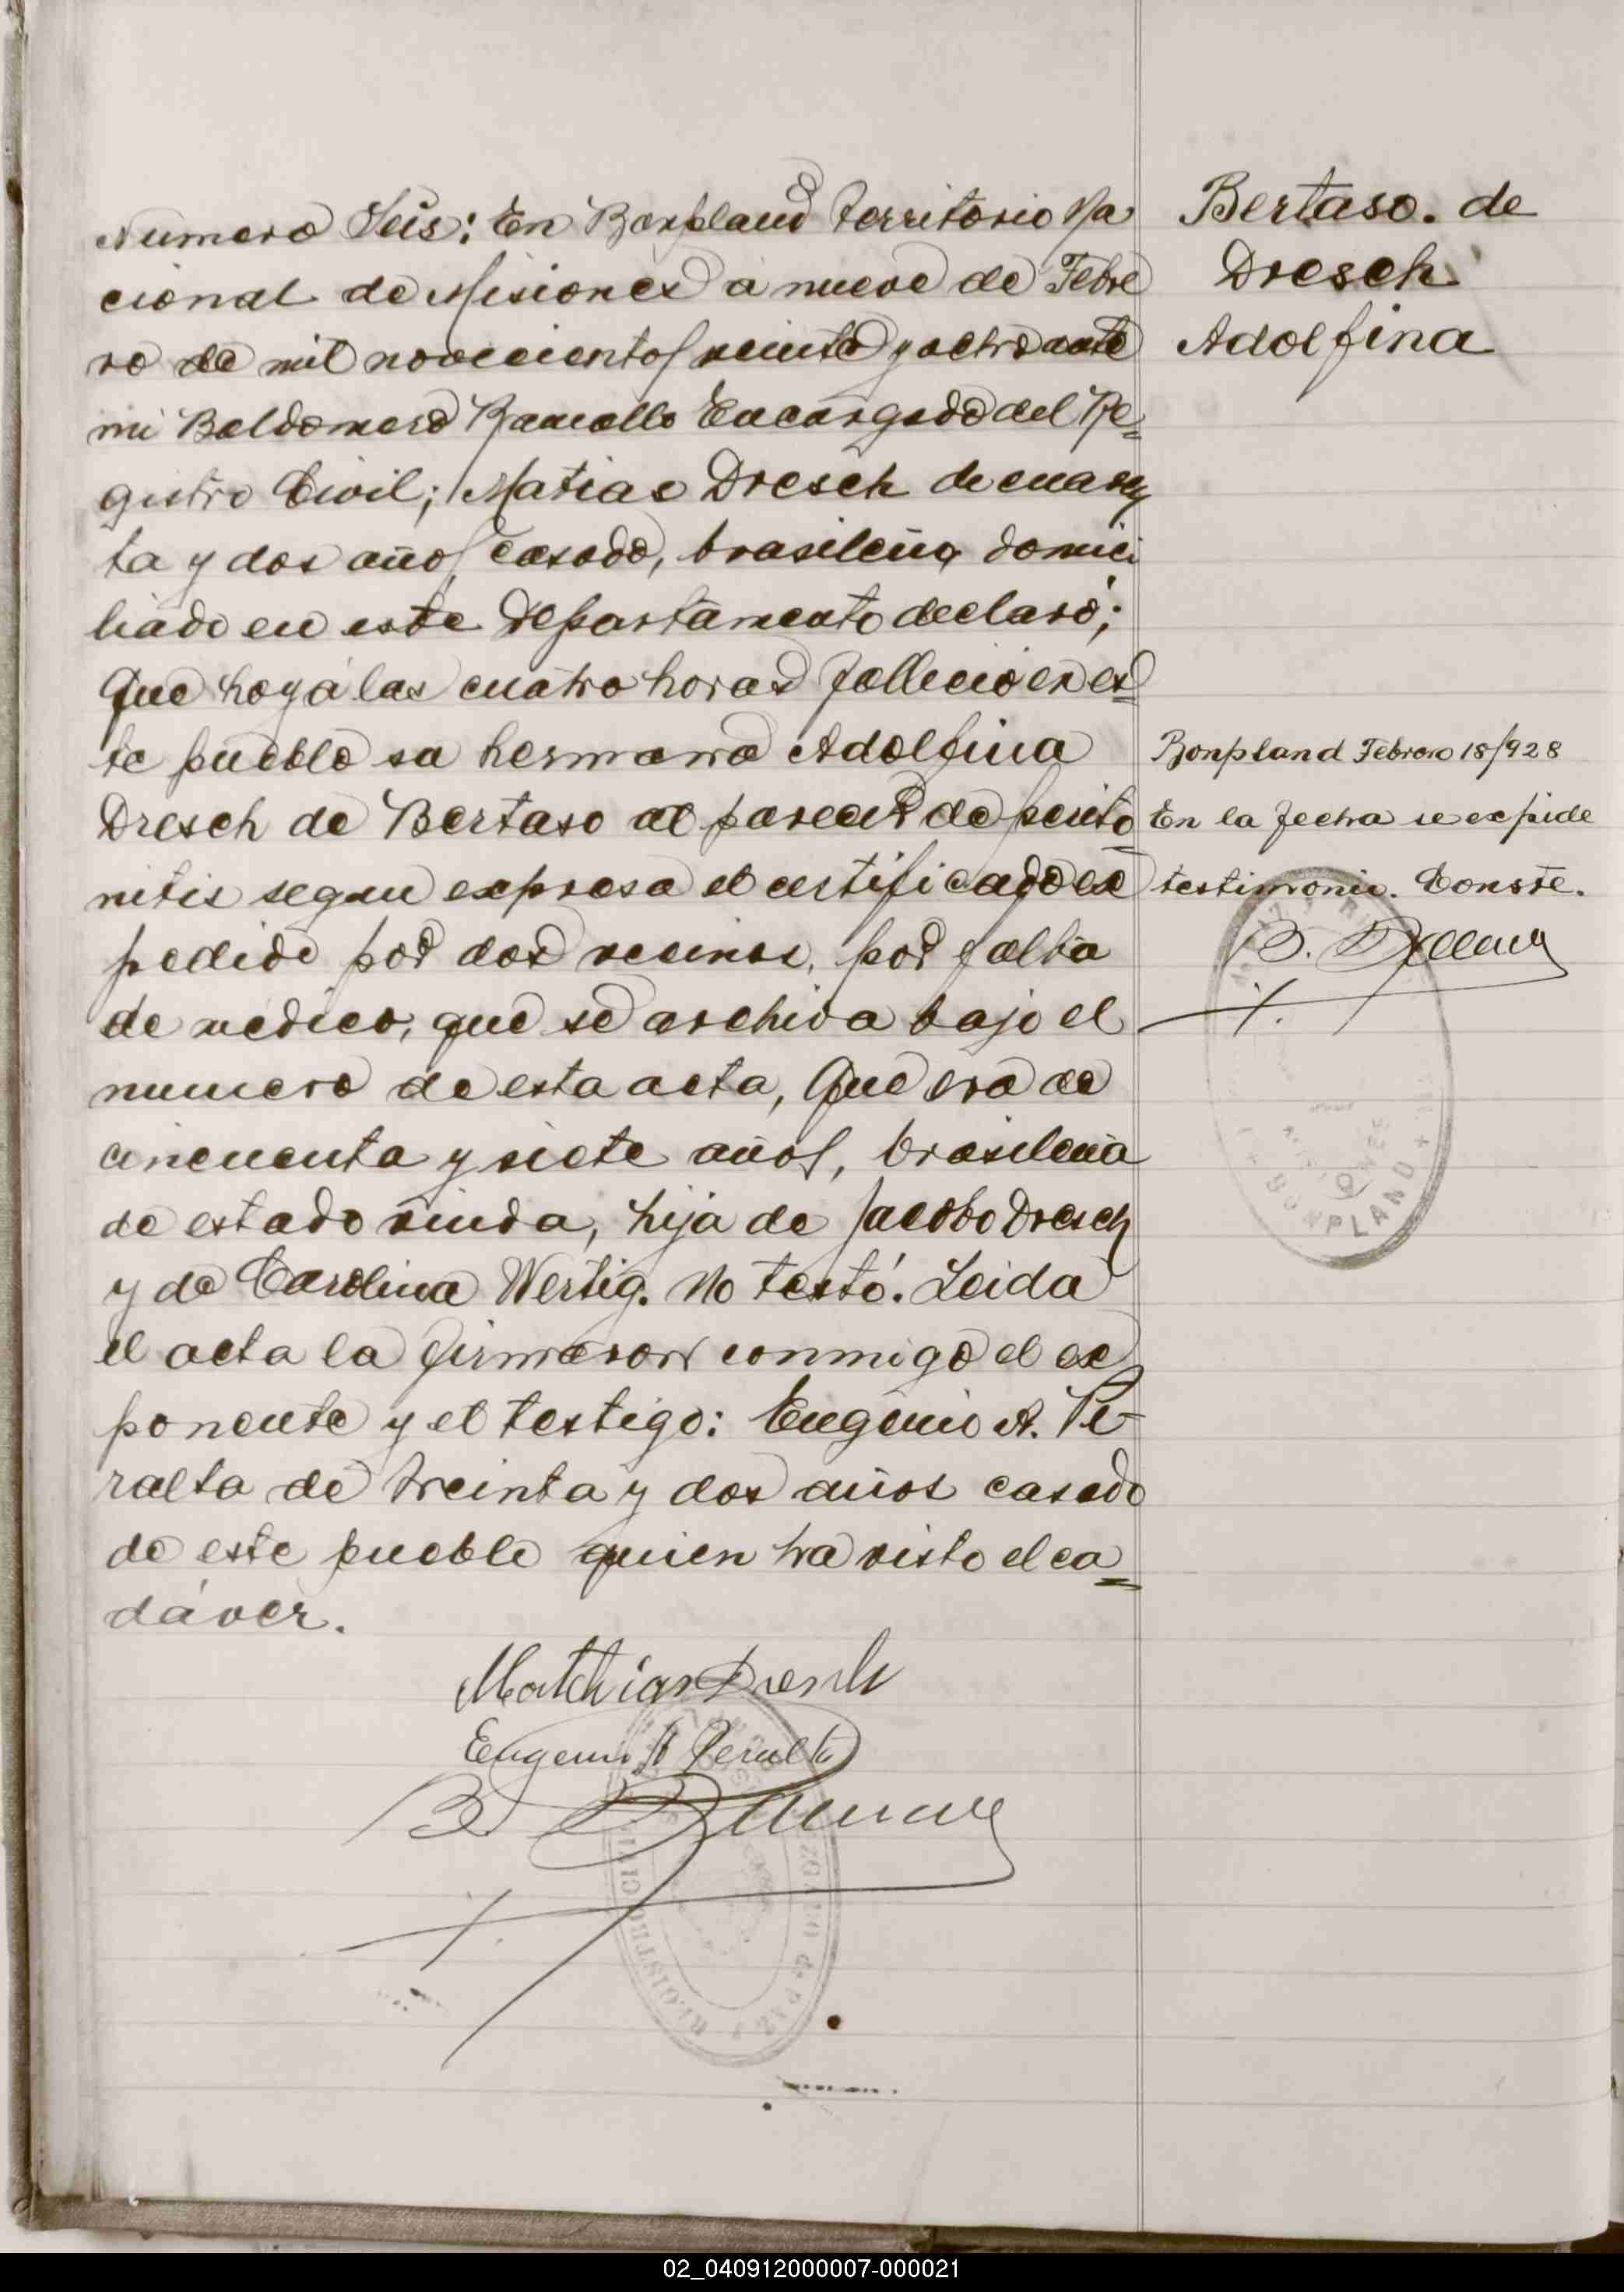 Numero Seis: En Bonpland Territorio Na
cional de Misiones a nueve de Febre
ro de mil novecientos veinte y ocho ante
mi Baldomero Ramallo Encargado del Re=
gistro Civil; Matias Dresch de cuaren
ta y dos años, casado, brasileño, domici
liado en este Departamento declaró;
Que hoy á las cuatro horas fallecio en es=
te pueblo su hermana Adolfina
Dresch de Bertaso al parecer de perito
nitis segun expresa el certificado ex
pedido por dos vecinos, por falta
de medico, que se archiva bajo el
numero de esta acta, Que era de
cincuenta y siete años, brasileña
de estado viuda, hija de Jacobo Dresch
y de Carolina Wertig. No testó. Leida
el acta la firmaron conmigo el ex
ponente y el testigo: Eugenio A. Pe-
ralta de treinta y dos años casado
de este pueblo quien ha visto el ca=
dáver.
Matthias Dresch
Eugenio A Peralta
B.
REGISTRO CIVIL
JUZGADO de PAZ
Bertaso. de
Dresch
Adolfina
Bonpland Febrero 18/928
En la fecha se expide
testimonio. Conste.
B.
BONPLAND
02_040912000007-000021